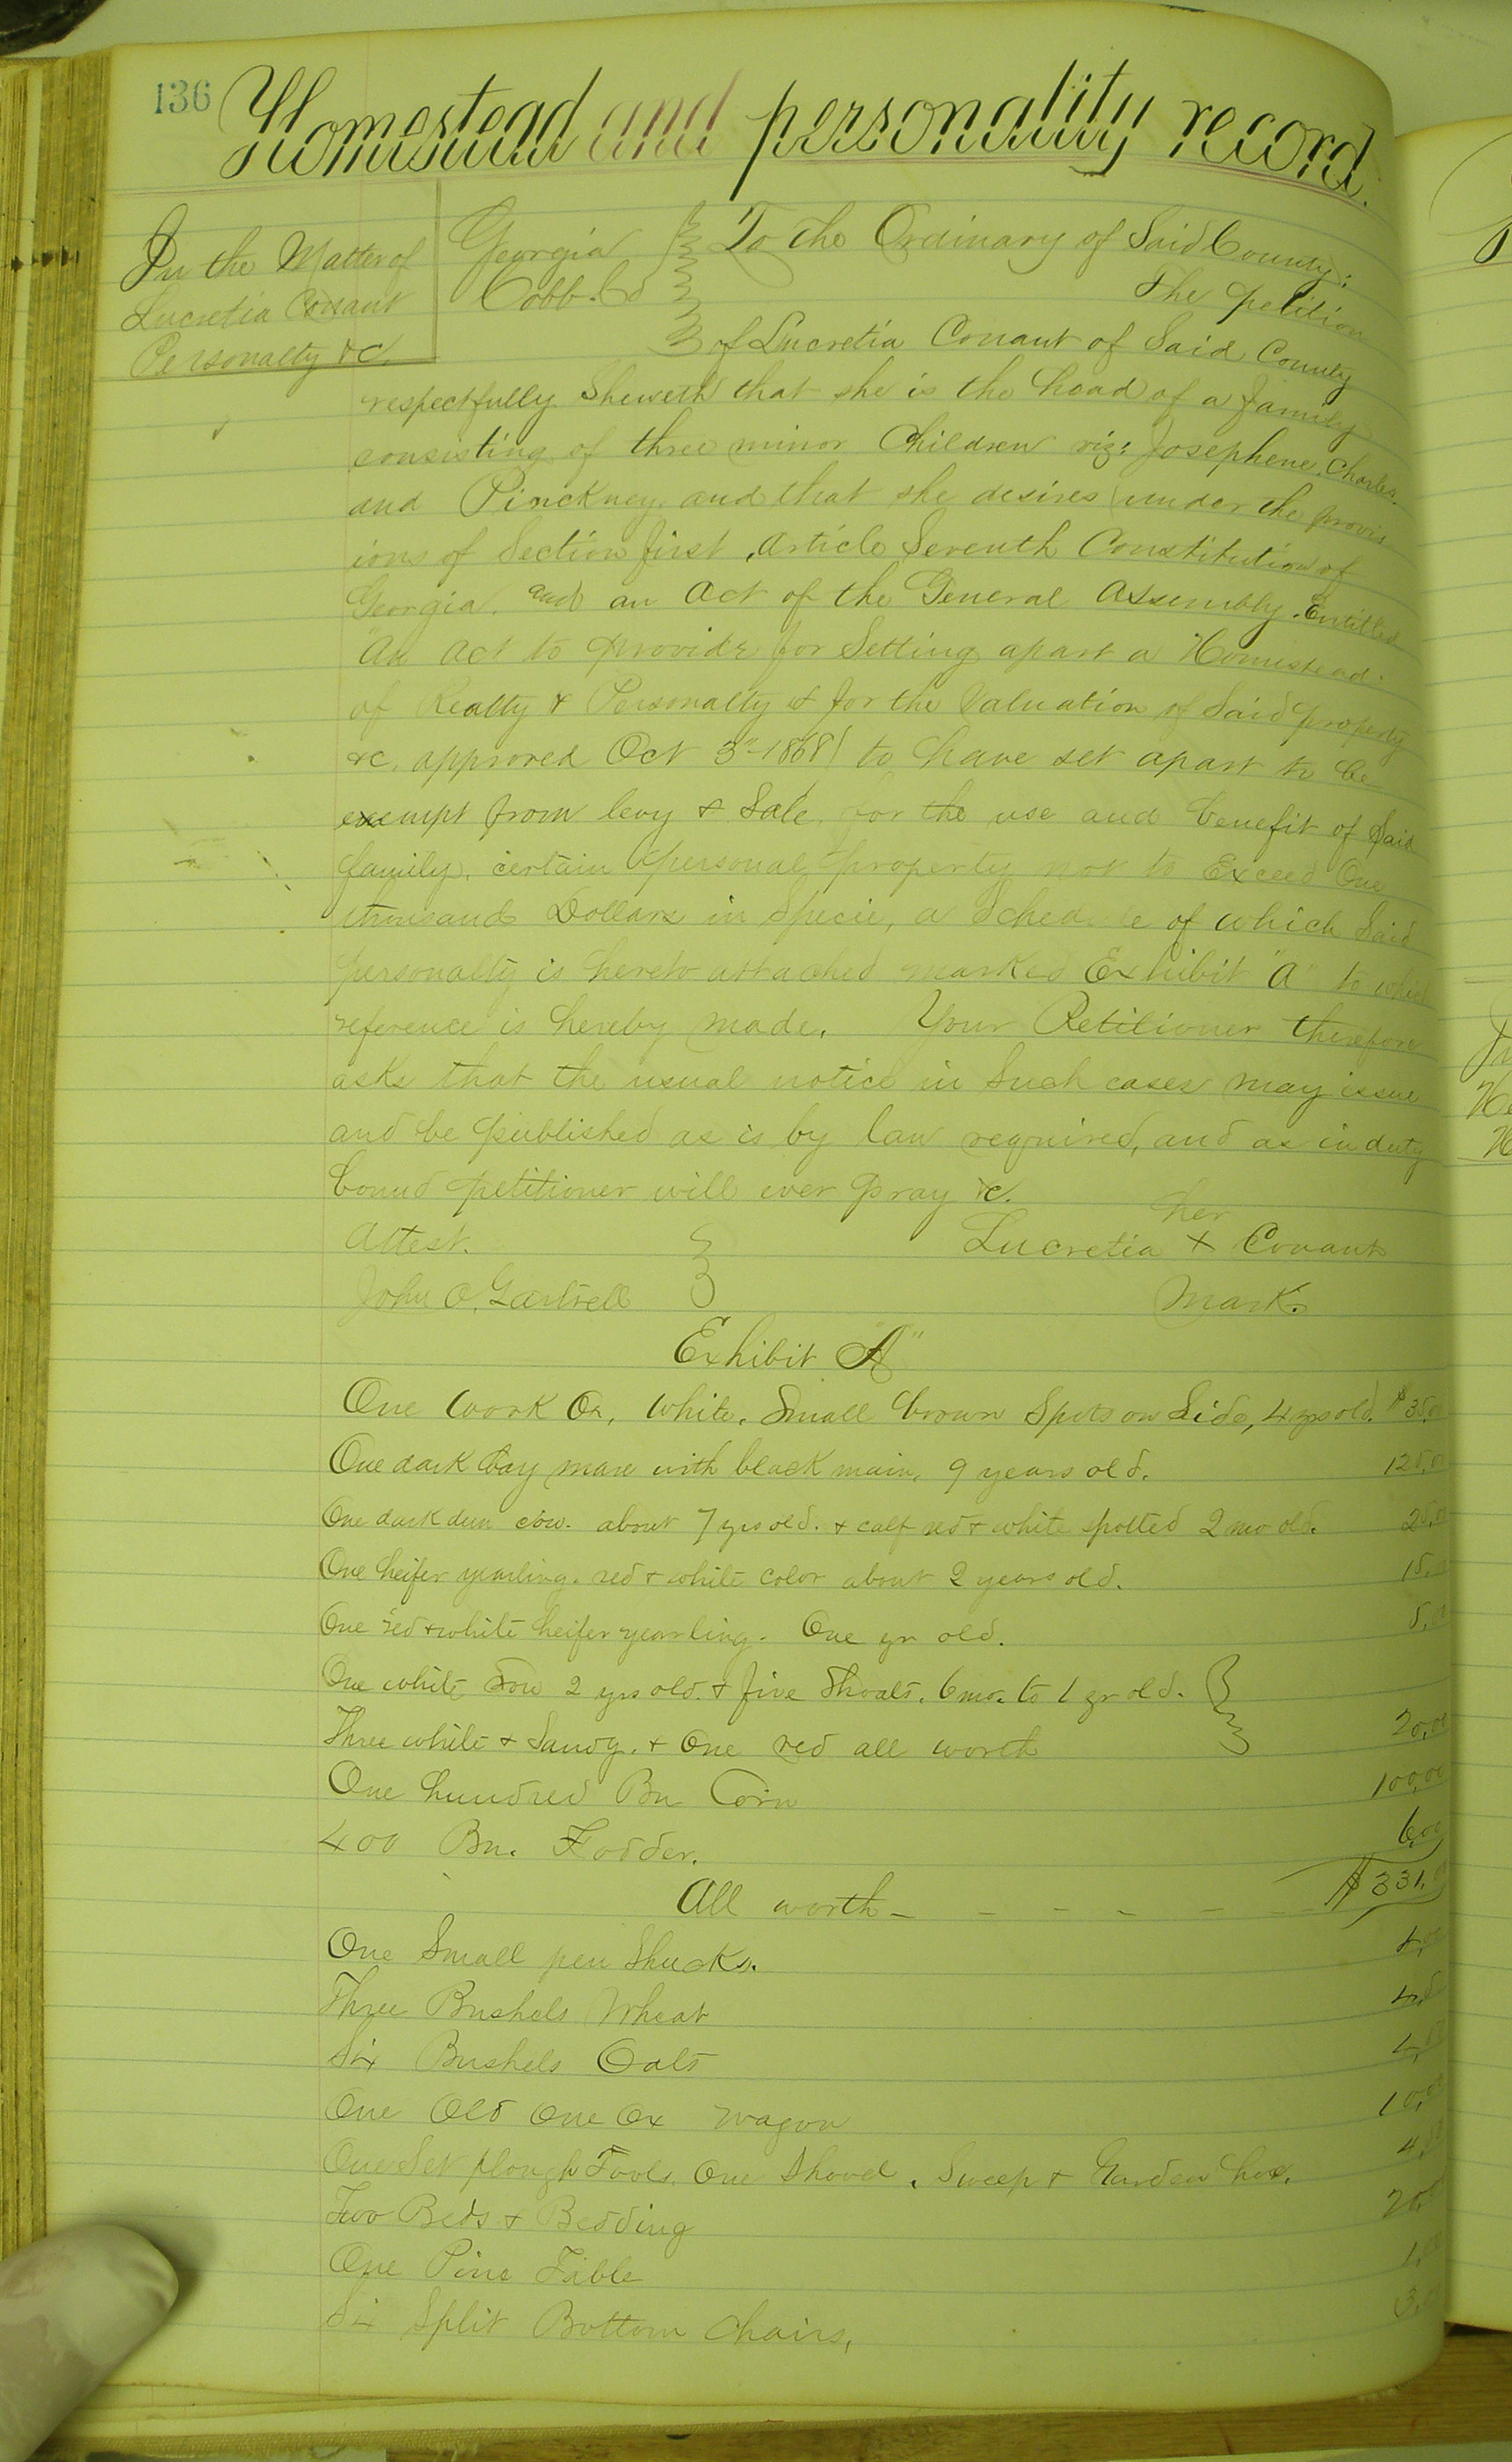 136
Homestead and personality record.
In the Matter of
Lucretia Conant
Personalty &c.
Georgia
Cobb. Co
To the Ordinary of Said County:
The petition
of Lucretia Conant of Said County
respectfully Sheweth that she is the head of a family
consisting of three minor Children viz: Josephene, Charles.
and Pinckney. and that she desires (under the provis
ions of Section first, Article Seventh Constitution of
Georgia. and an Act of the General Assembly. Entitled
"An Act to provide for Setting apart a Homestead.
of Realty & Personalty & for the Valuation of Said property
&c. approved Oct 3" 1868) to have set apart to be
exempt from levy & Sale, for the use and benefit of Said
family, certain personal property not to Exceed One
thousand Dollars in Specie, a Schedule of which Said
personalty is hereto attached marked Exhibit "A" to which
reference is hereby made. Your Petitioner therefore
asks that the usual notice in Such cases may issue
and be published as is by law required, and as in duty
bound petitioner will ever pray &c.
Attest.
John O. Gartrell
her
Lucretia X Conant
Mark.
Exhibit "A"
One Work Ox, White, Small brown Spots on Side, 4 yrs old. $35,00
One dark bay mare with black main, 9 years old. 125,00
One dark dun cow. about 7 yrs old. & calf red & white spotted 2 mo old. 25,00
One heifer yearling. red & white color about 2 years old. 15,00
One red & white heifer yearling. One yr old. 5,00
One white Sow 2 yrs old. & five Shoats. 6 mo. to 1 yr old.
Three white & Sandy. & One red all worth 20,00
One hundred Bu Corn 100,00
400 Bu. Fodder. 6,00
All worth - - - - - - $331,00
One Small pen Shucks.
Three Bushels Wheat
Six Bushels Oats
One Old One Ox Wagon 10,00
One Set plough Tools, One Shovel, Sweep & Garden hoe.
Two Beds & Bedding
One Pine Table
Six Split Bottom Chairs,